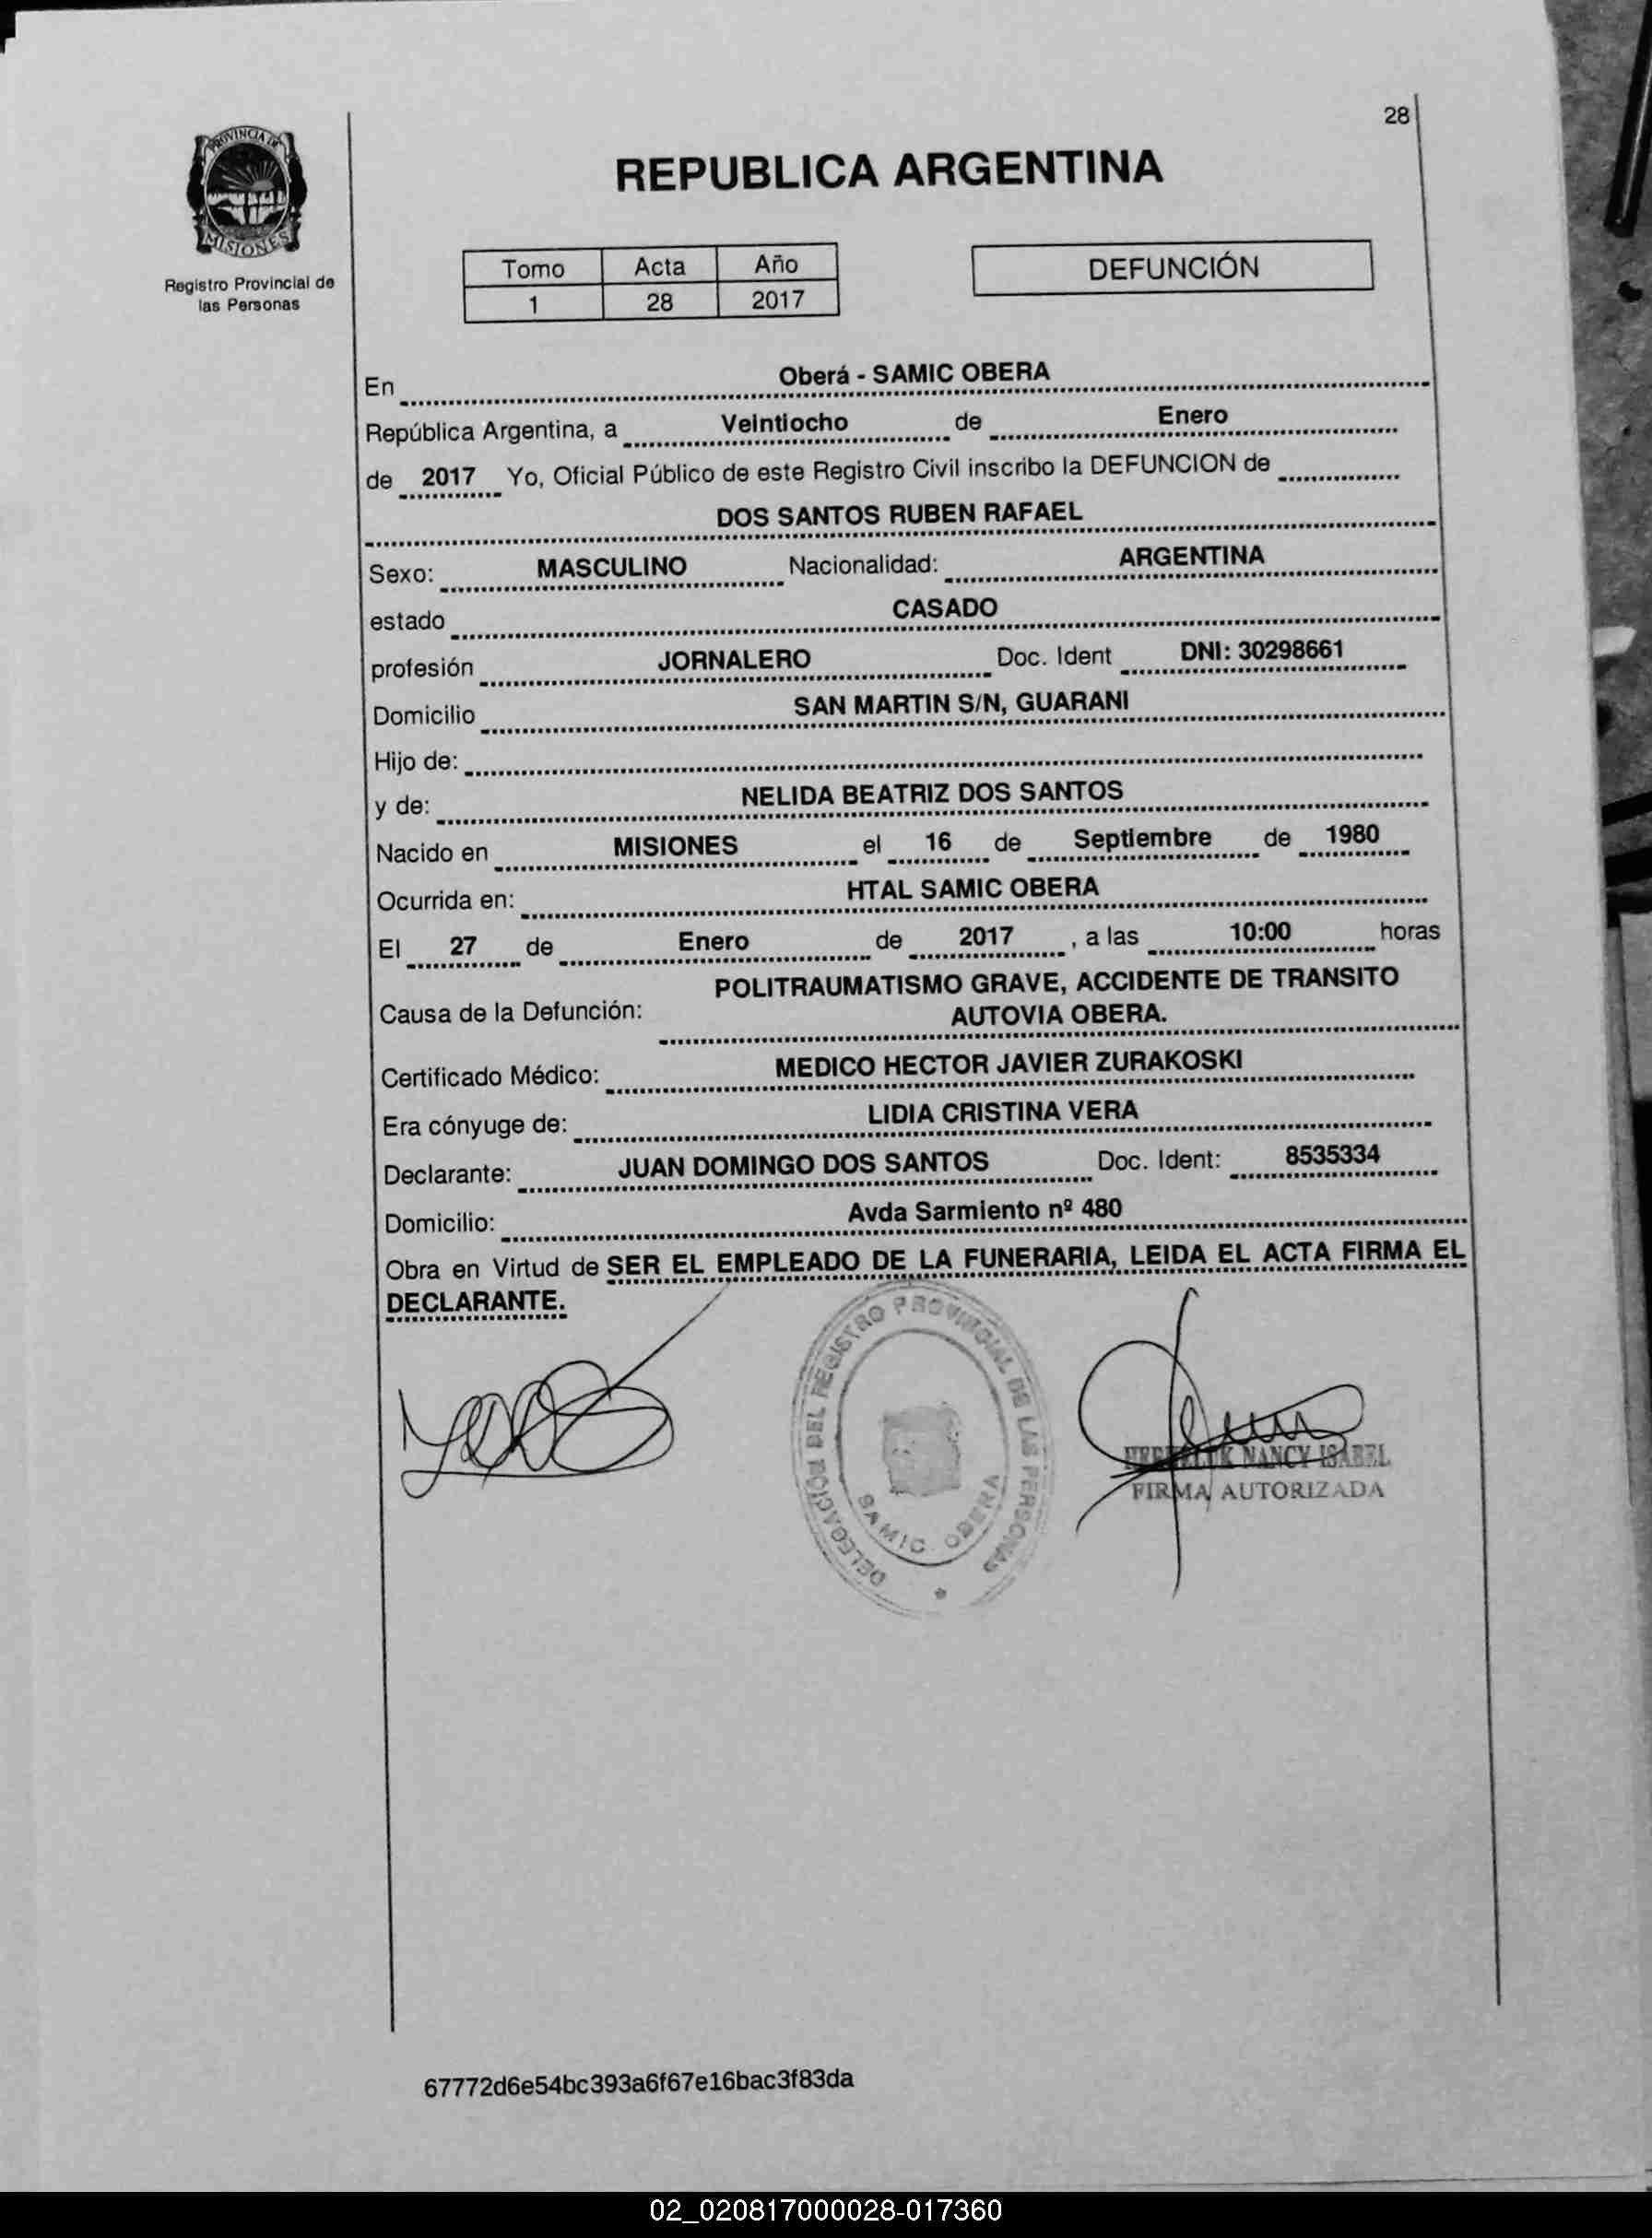 28
PROVINCIA DE
MISIONES
Registro Provincial de
las Personas
REPUBLICA ARGENTINA
Tomo Acta Año
1 28 2017
DEFUNCIÓN
En Oberá - SAMIC OBERA
República Argentina, a Veintiocho de Enero
de 2017 Yo, Oficial Público de este Registro Civil inscribo la DEFUNCION de
DOS SANTOS RUBEN RAFAEL
Sexo: MASCULINO Nacionalidad: ARGENTINA
estado CASADO
profesión JORNALERO Doc. Ident DNI: 30298661
Domicilio SAN MARTIN S/N, GUARANI
Hijo de:
y de: NELIDA BEATRIZ DOS SANTOS
Nacido en MISIONES el 16 de Septiembre de 1980
Ocurrida en: HTAL SAMIC OBERA
El 27 de Enero de 2017 , a las 10:00 horas
Causa de la Defunción: POLITRAUMATISMO GRAVE, ACCIDENTE DE TRANSITO
AUTOVIA OBERA.
Certificado Médico: MEDICO HECTOR JAVIER ZURAKOSKI
Era cónyuge de: LIDIA CRISTINA VERA
Declarante: JUAN DOMINGO DOS SANTOS Doc. Ident: 8535334
Domicilio: Avda Sarmiento nº 480
Obra en Virtud de SER EL EMPLEADO DE LA FUNERARIA, LEIDA EL ACTA FIRMA EL
DECLARANTE.
DELEGACIÓN DEL REGISTRO PROVINCIAL DE LAS PERSONAS
SAMIC OBERA
NANCY ISABEL
FIRMA AUTORIZADA
67772d6e54bc393a6f67e16bac3f83da
02_020817000028-017360